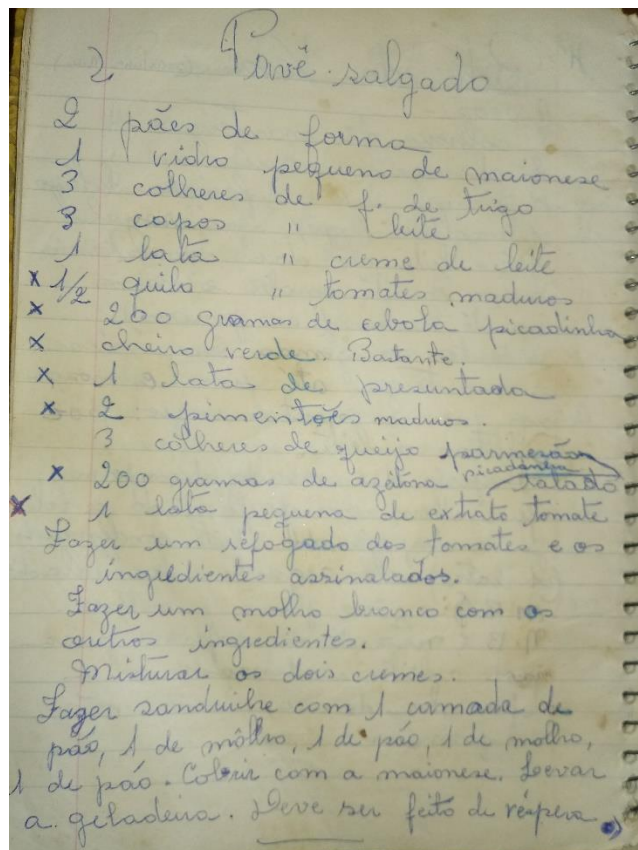 2 Pavê salgado
2 pães de forma
1 vidro pequeno de maionese
3 colheres de f. de trigo
3 copos " leite
1 lata " creme de leite
x 1/2 quilo " tomates maduros
x 200 gramas de cebola picadinha
x cheiro verde. Bastante.
x 1 lata de presuntada
x 2 pimentões maduros.
3 colheres de queijo parmezão ralado
x 200 gramas de azeitona picadinha
x 1 lata pequena de extrato tomate
Fazer um refogado dos tomates e os
ingredientes assinalados.
Fazer um molho branco com os
outros ingredientes.
Misturar os dois cremes.
Fazer sanduihe com 1 camada de
pão, 1 de môlho, 1 de pão, 1 de molho,
1 de pão. Cobrir com a maionese. Levar
a geladeira. Deve ser feito de véspera.